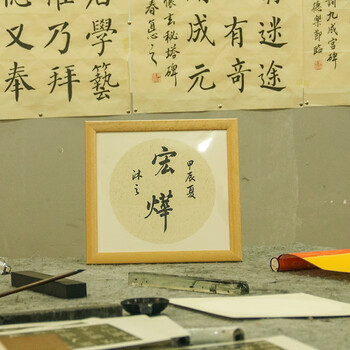 九成宮碑
迷途
有奇
成元
玄秘塔碑
學藝
乃拜
又奉
甲辰夏
宏燁
沐之